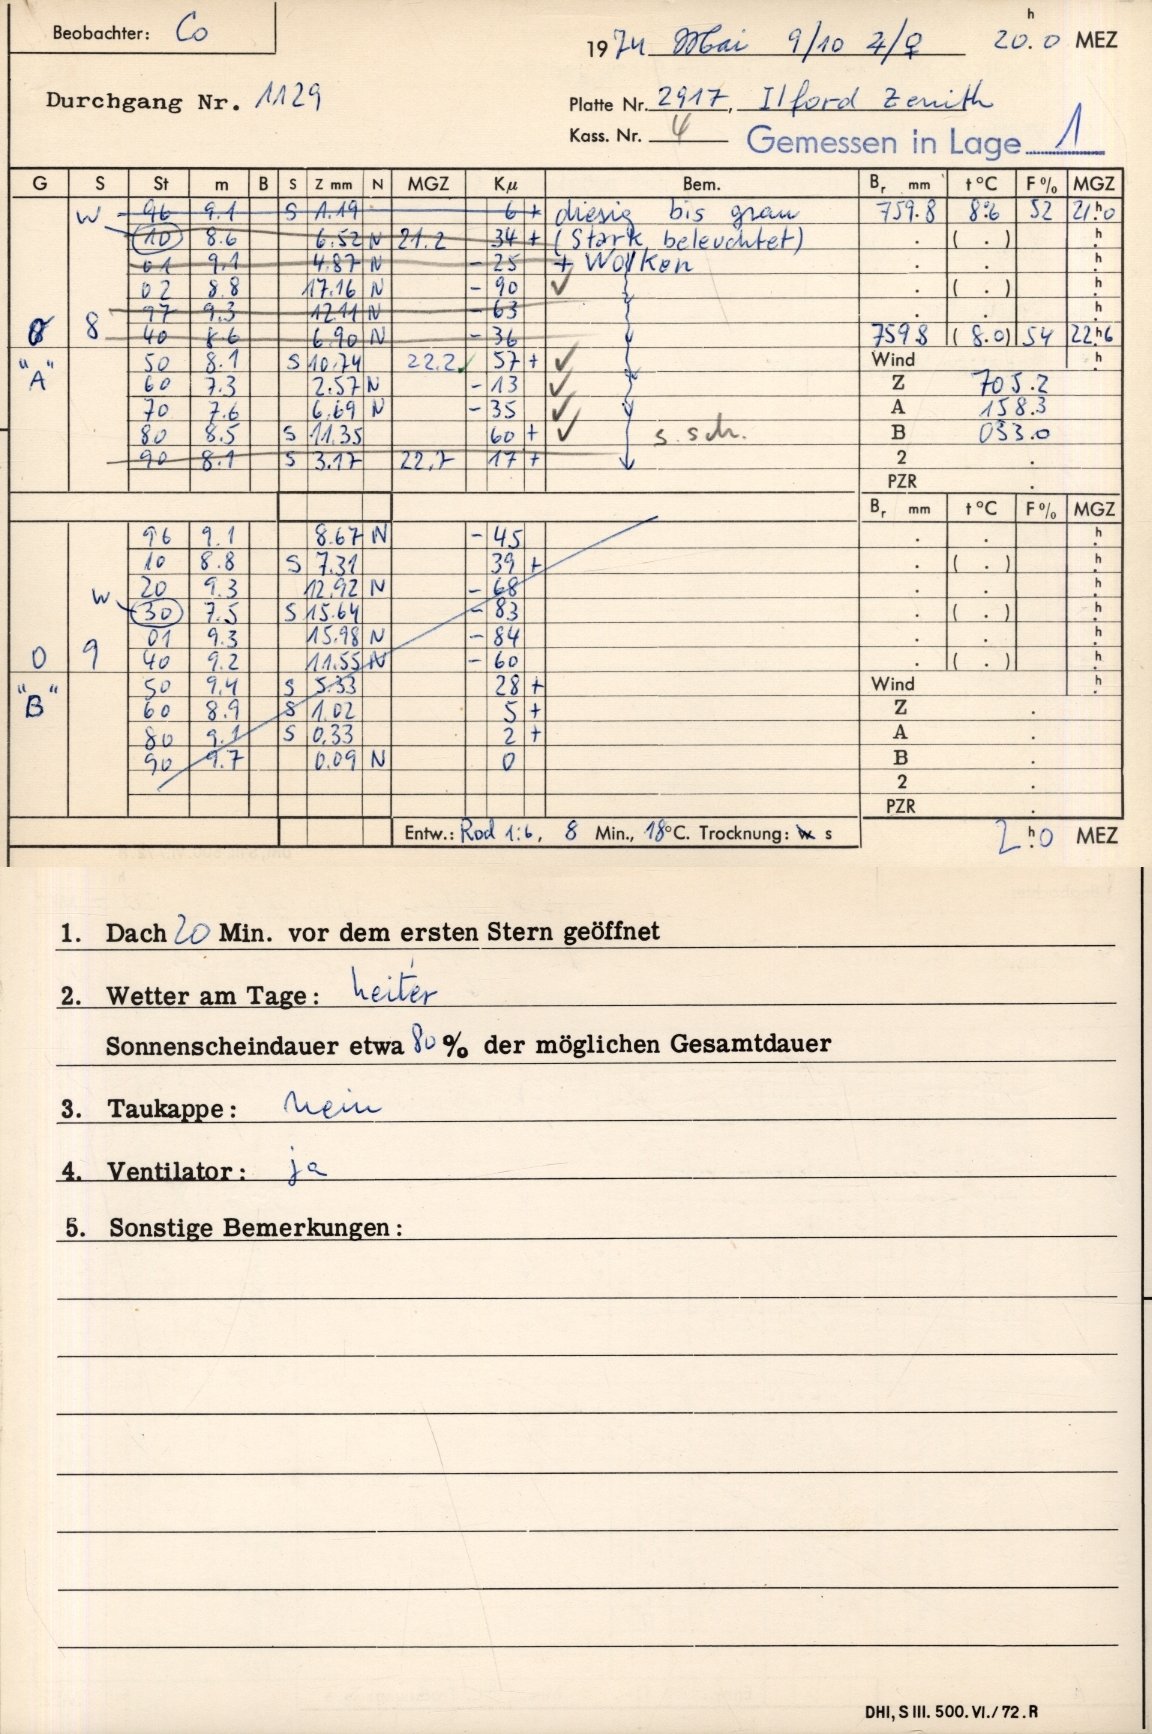 Beobachter: Co
1974 Mai 9/10 ♃/♀ 20.ʰ0 MEZ
Durchgang Nr. 1129
Platte Nr. 2917, Ilford Zenith
Kass. Nr. 4 Gemessen in Lage 1
G S St m B S Z mm N MGZ Kμ Bem. Bᵣ mm t°C F% MGZ
W 96 9.1 S 1.19 6 + diesig bis grau 759.8 8.6 52 21.ʰ0
10 8.6 6.52 N 21.2 34 + (Stark beleuchtet) . ( . ) .ʰ
01 9.1 4.87 N - 25 + Wolken . . .ʰ
02 8.8 17.16 N - 90 ✓ . ( . ) .ʰ
97 9.3 12.11 N - 63 . . .ʰ
8 40 8.6 6.90 N - 36 759.8 ( 8.0) 54 22.ʰ6
"A" 50 8.1 S 10.74 22.2 ✓ 57 + ✓ Wind .ʰ
60 7.3 2.57 N - 13 ✓ Z 705.2
70 7.6 6.69 N - 35 ✓ A 158.3
80 8.5 S 11.35 60 + ✓ s. sch. B 033.0
90 8.1 S 3.17 22.7 17 + 2 .
PZR .
Bᵣ mm t°C F% MGZ
96 9.1 8.67 N - 45 . . .ʰ
10 8.8 S 7.31 39 + . ( . ) .ʰ
20 9.3 12.92 N - 68 . . .ʰ
W 30 7.5 S 15.64 - 83 . ( . ) .ʰ
01 9.3 15.98 N - 84 . . .ʰ
0 9 40 9.2 11.55 N - 60 . ( . ) .ʰ
"B" 50 9.4 S 5.33 28 + Wind .ʰ
60 8.9 S 1.02 5 + Z .
80 9.1 S 0.33 2 + A .
90 9.7 0.09 N 0 B .
2 .
PZR .
Entw.: Rod 1:6, 8 Min., 18°C. Trocknung: w s 2.ʰ0 MEZ
1. Dach 20 Min. vor dem ersten Stern geöffnet
2. Wetter am Tage: heiter
Sonnenscheindauer etwa 80 % der möglichen Gesamtdauer
3. Taukappe: nein
4. Ventilator: ja
5. Sonstige Bemerkungen:
DHI, S III. 500. VI./72. R